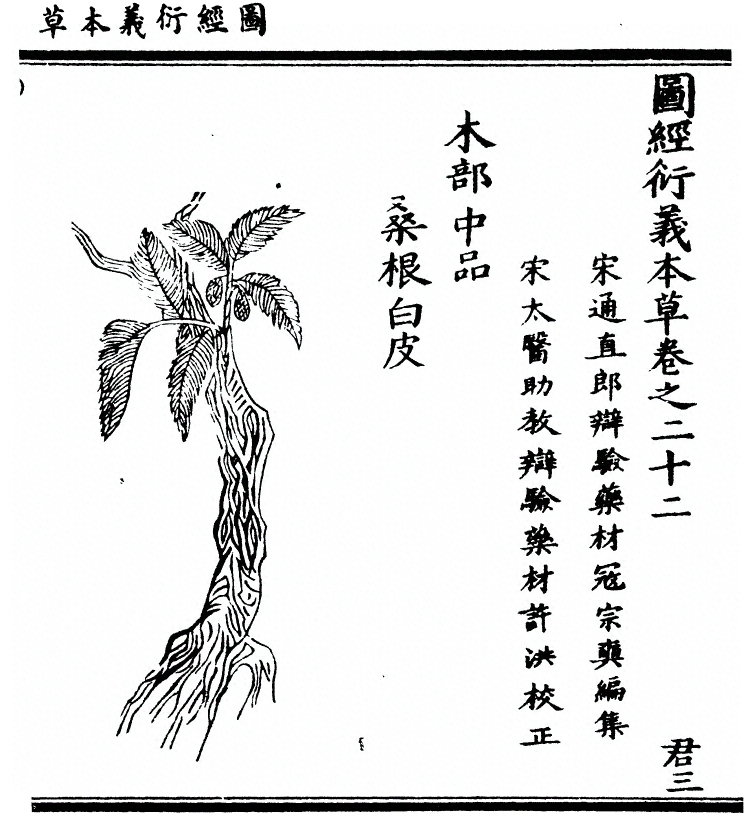 圖經衍義本草
圖經衍義本草卷之二十二
君三
宋通直郎辯驗藥材冦宗奭編集
宋太醫助教辯驗藥材許洪校正
木部中品
又桑根白皮